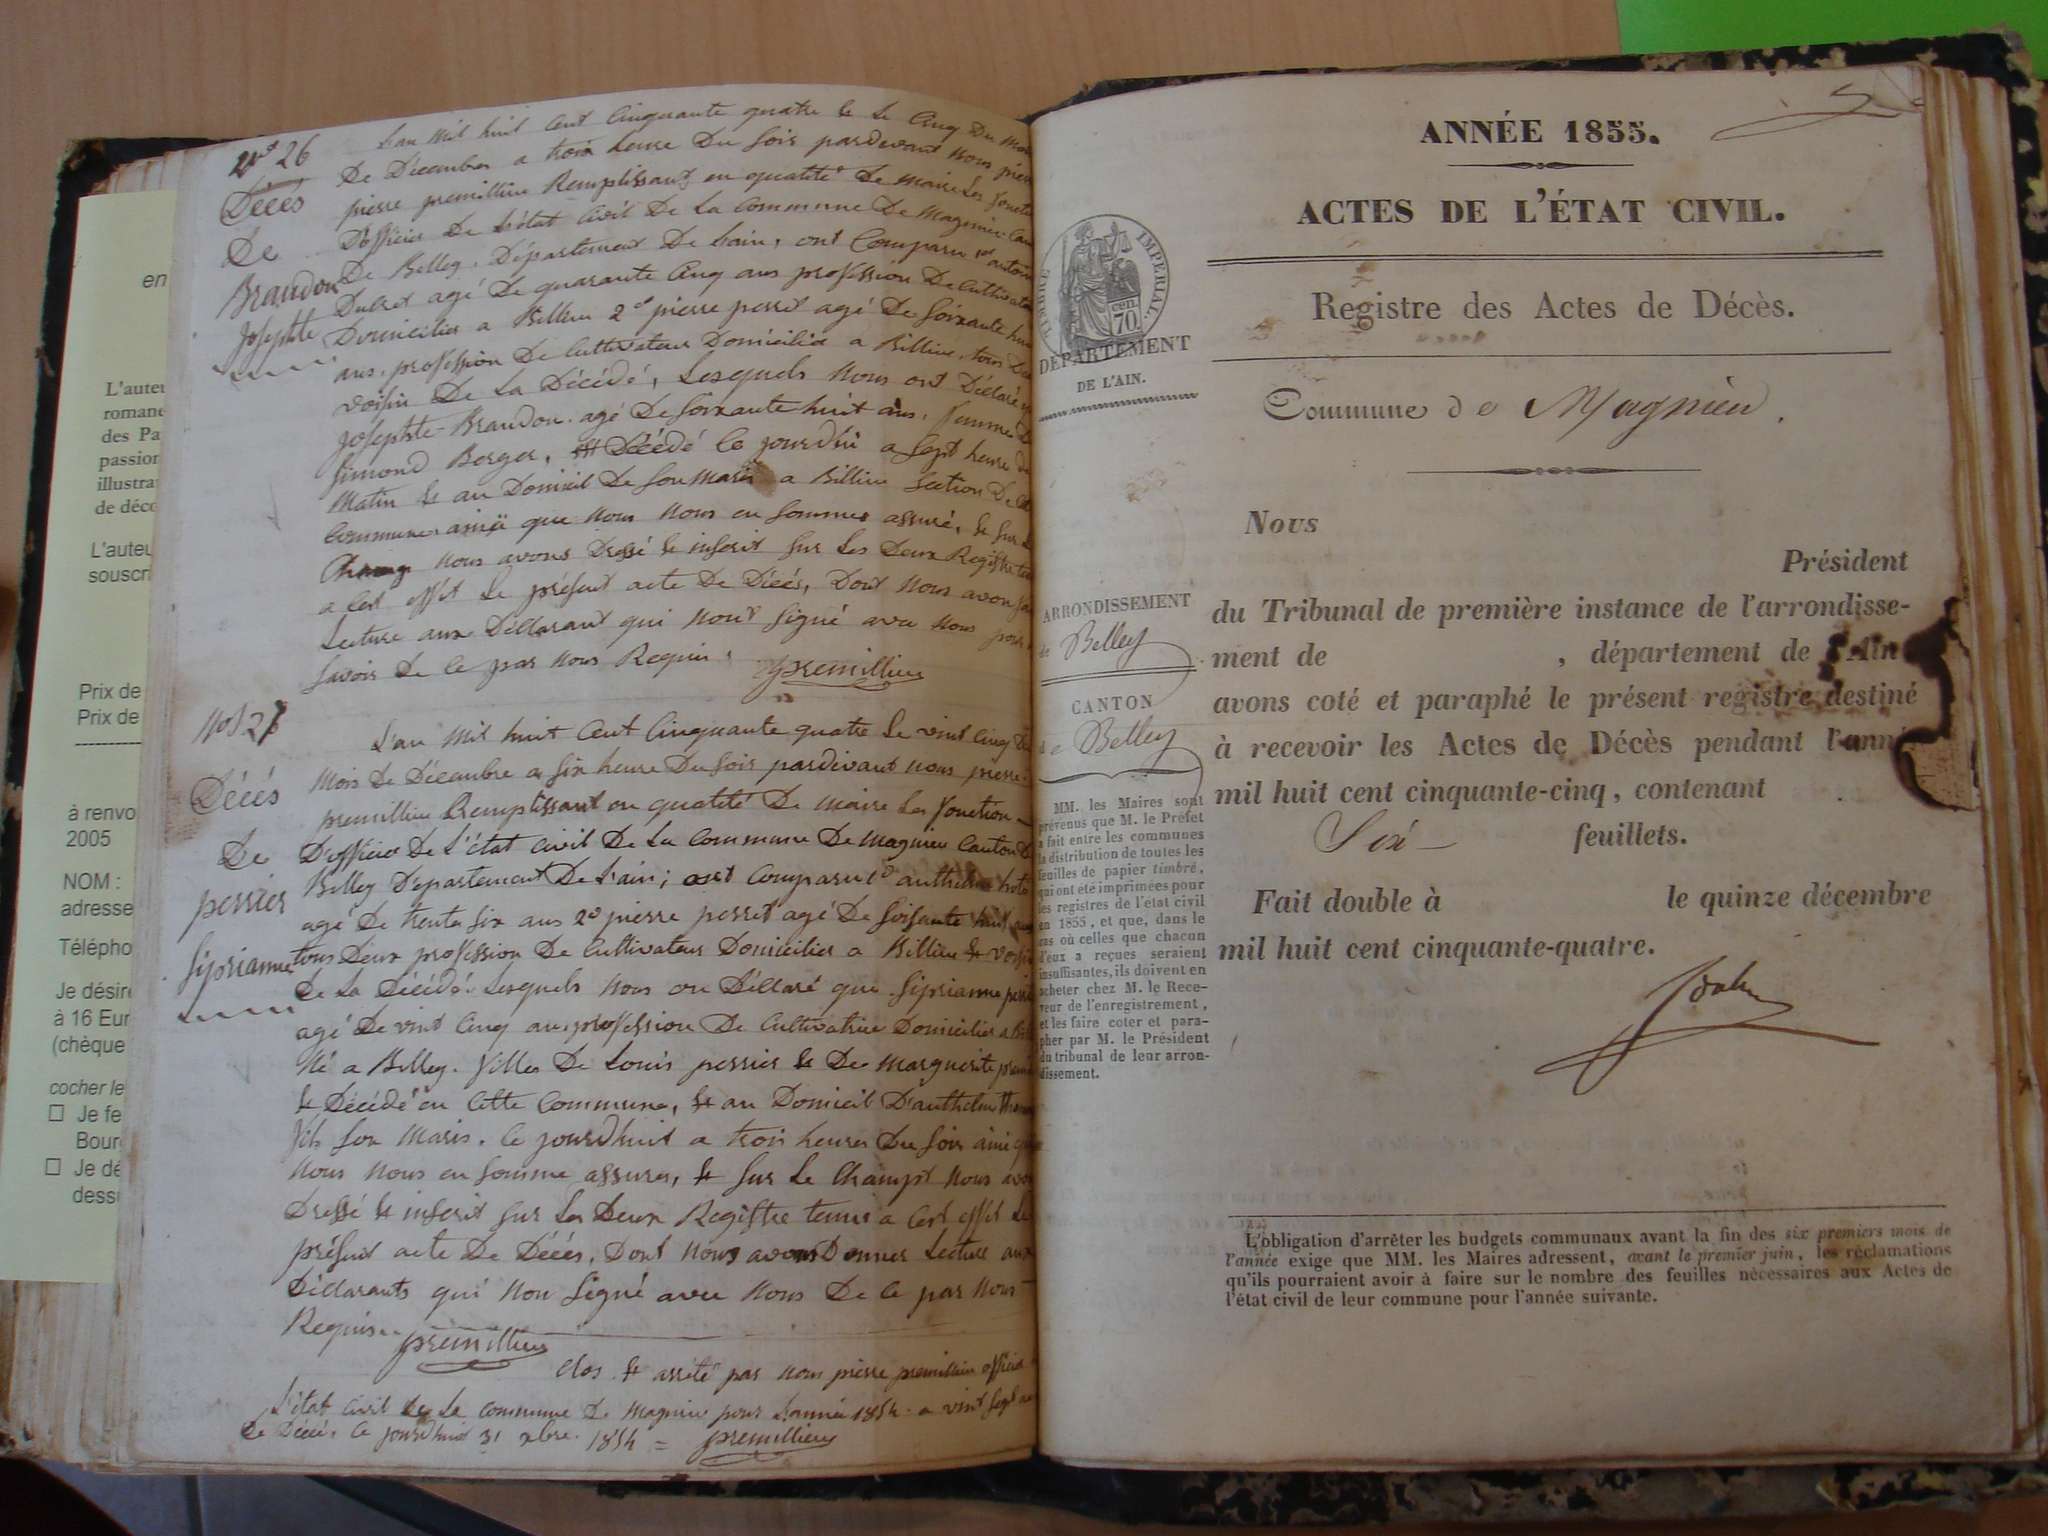 en
L'auteu
romane
des Pa
passion
illustra
de déco
L'auteu
souscri
Prix de
Prix de
à renvo
2005
NOM :
adresse
Télépho
Je désire
à 16 Eur
(chèque
cocher le
Je fe
Bour
Je dé
dess
26
Décés
De
Brandon
Josephte
L'an mil huit Cent Cinquante quatre & Le Cinq Du mois
De Décembre a trois heure Du soir pardevant nous
pierre premillieu Remplissant en qualité De maire Les fonction
D'officier De L'état Civil De La Commune De Magnieu
De Belley, Département De L'ain, ont Comparu
Dulret agé De quarante Cinq ans profession De Cultivateur
Domicilier a Billieu 2° pierre perret agé De Soixante huit
ans, profession De Cultivateur Domicilié a Billieu, tous Deux
voisin De La Décédé, Lesquels Nous ont Déclaré
Josephte Brandon agé De Soixante huit ans, femme De
Simond Berger, Décédé Ce jourdhui a Sept heure du
Matin & au Domicil De Son Maris a Billieu Section De
Commune ainsi que nous nous en sommes assuré, & sur
Champ nous avons Dressé & inscrit sur Les Deux Registre
a Cest effêt Le présent acte De Décés, Dont Nous avons
Lecture aux Déclarant qui Nont Signé avec Nous pour
Savoir De Ce par Nous Requis.
premillieu
No 27
Décés
De
perrier
Siprianne
L'an mil huit Cent Cinquante quatre Le vint Cinq Du
Mois De Décembre a Six heure Du Soir pardevant nous pierre
premillieu Remplissant en qualité De maire Les fonction
D'officier De L'état Civil De La Commune De Magnieu Canton De
Belley Département De L'ain; ont Comparut anthelme
agé De trente Six ans 2° pierre perret agé De Soisante huit ans
tous Deux profession De Cultivateur Domicilier a Billieu & voisin
De La Décédé. Lesquels Nous on Déclaré que Siprianne perrier
agé De vint Cinq ans profession De Cultivatrice Domicilier a
Né a Belley. filles De Louis perrier & De Marguerite
& Décédé en Cette Commune, & au Domicil D'anthelme
fils Son Maris. Ce jourdhuit a trois heures Du Soir ainsi que
Nous Nous en Somme assures, & Sur Le Champt Nous avons
Dressé & inscrit Sur Les Deux Registre tenus a Cest effêt Le
présent acte De Décés, Dont Nous avons Donner Lecture aux
Déclarants qui Non Signé avec Nous De Ce par Nous
Requis.
premillieu
Clos & arrêté par nous pierre premillieu officier
L'état Civil de La Commune De Magnieu pour L'année 1854 a vint Sept actes
De Décé, Ce jourdhui 31 xbre. 1854 = premillieu
ANNÉE 1855.
ACTES DE L'ÉTAT CIVIL.
Registre des Actes de Décès.
TIMBRE IMPERIAL.
70 cen.
DÉPARTEMENT
DE L'AIN.
Commune de Magnieu.
Nous
Président
du Tribunal de première instance de l'arrondisse-
ment de , département de l'Ain
avons coté et paraphé le présent registre destiné
à recevoir les Actes de Décès pendant l'anné
mil huit cent cinquante-cinq, contenant
Six feuillets.
Fait double à le quinze décembre
mil huit cent cinquante-quatre.
ARRONDISSEMENT
de Belley
CANTON
de Belley
MM. les Maires sont
prévenus que M. le Préfet
a fait entre les communes
la distribution de toutes les
feuilles de papier timbré,
qui ont été imprimées pour
les registres de l'état civil
en 1855, et que, dans le
cas où celles que chacun
d'eux a reçues seraient
insuffisantes, ils doivent en
acheter chez M. le Rece-
veur de l'enregistrement,
et les faire coter et para-
pher par M. le Président
du tribunal de leur arron-
dissement.
L'obligation d'arrêter les budgets communaux avant la fin des six premiers mois de
l'année exige que MM. les Maires adressent, avant le premier juin, les réclamations
qu'ils pourraient avoir à faire sur le nombre des feuilles nécessaires aux Actes de
l'état civil de leur commune pour l'année suivante.